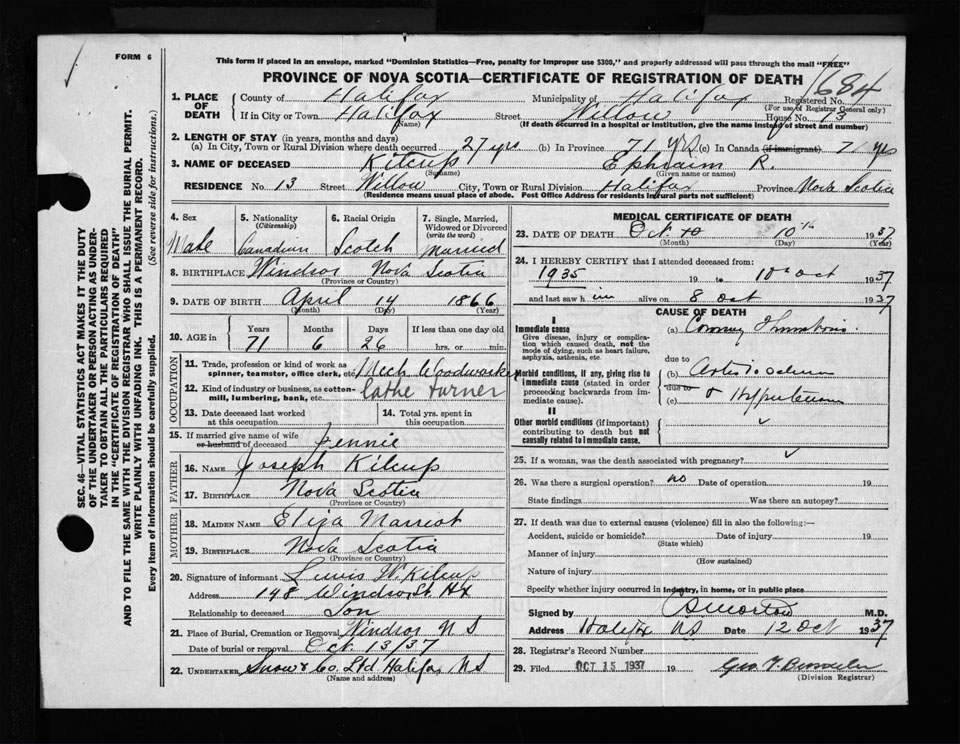 FORM 6
This form if placed in an envelope, marked "Dominion Statistics—Free, penalty for improper use $300," and properly addressed will pass through the mail "FREE"
PROVINCE OF NOVA SCOTIA—CERTIFICATE OF REGISTRATION OF DEATH
1684
1. PLACE OF DEATH
County of Halifax Municipality of Halifax Registered No.
(For use of Registrar General only)
If in City or Town Halifax Street Willow House No. 13
(Name) (If death occurred in a hospital or institution, give the name instead of street and number)
2. LENGTH OF STAY (in years, months and days)
(a) In City, Town or Rural Division where death occurred 27 yrs (b) In Province 71 yrs (c) In Canada (if immigrant) 71 yrs
3. NAME OF DECEASED Kilcup Ephraim R.
(Surname) (Given name or names)
RESIDENCE No. 13 Street Willow City, Town or Rural Division Halifax Province Nova Scotia
(Residence means usual place of abode. Post Office Address for residents in rural parts not sufficient)
4. Sex
Male
5. Nationality
(Citizenship)
Canadian
6. Racial Origin
Scotch
7. Single, Married, Widowed or Divorced
(write the word)
Married
8. BIRTHPLACE Windsor Nova Scotia
(Province or Country)
9. DATE OF BIRTH April 14 1866
(Month) (Day) (Year)
10. AGE in
Years Months Days If less than one day old
71 6 26 hrs. or min.
OCCUPATION
11. Trade, profession or kind of work as spinner, teamster, office clerk, etc. Mech Woodworker
12. Kind of industry or business, as cotton-mill, lumbering, bank, etc. Lathe turner
13. Date deceased last worked at this occupation
14. Total yrs. spent in this occupation
15. If married give name of wife or husband of deceased Jennie
FATHER
16. NAME Joseph Kilcup
17. BIRTHPLACE Nova Scotia
(Province or Country)
MOTHER
18. MAIDEN NAME Eliza Marriot
19. BIRTHPLACE Nova Scotia
(Province or Country)
20. Signature of informant Lewis W. Kilcup
Address 148 Windsor St. Hx
Relationship to deceased Son
21. Place of Burial, Cremation or Removal Windsor N S
Date of burial or removal Oct. 13/37
22. UNDERTAKER Snow & Co. Ltd Halifax, N S
(Name and address)
MEDICAL CERTIFICATE OF DEATH
23. DATE OF DEATH Oct. 10 10th 1937
(Month) (Day) (Year)
24. I HEREBY CERTIFY that I attended deceased from:
1935 19 to 10 Oct 1937
and last saw him alive on 8 Oct 1937
CAUSE OF DEATH
I
Immediate cause
Give disease, injury or complication which caused death, not the mode of dying, such as heart failure, asphyxia, asthenia, etc.
(a)
due to
Morbid conditions, if any, giving rise to immediate cause (stated in order proceeding backwards from immediate cause).
(b)
due to
(c)
II
Other morbid conditions (if important) contributing to death but not causally related to immediate cause.
25. If a woman, was the death associated with pregnancy?
26. Was there a surgical operation? no Date of operation 19
State findings Was there an autopsy?
27. If death was due to external causes (violence) fill in also the following:—
Accident, suicide or homicide? Date of injury 19
(State which)
Manner of injury
(How sustained)
Nature of injury
Specify whether injury occurred in industry, in home, or in public place
Signed by M.D.
Address Halifax NS Date 12 Oct 1937
28. Registrar's Record Number
29. Filed OCT 15 1937 19
(Division Registrar)
SEC. 46—VITAL STATISTICS ACT MAKES IT THE DUTY OF THE UNDERTAKER OR PERSON ACTING AS UNDERTAKER TO OBTAIN ALL THE PARTICULARS REQUIRED IN THE "CERTIFICATE OF REGISTRATION OF DEATH" AND TO FILE THE SAME WITH THE DIVISION REGISTRAR WHO SHALL ISSUE THE BURIAL PERMIT.
WRITE PLAINLY WITH UNFADING INK. THIS IS A PERMANENT RECORD.
Every item of information should be carefully supplied. (See reverse side for instructions).